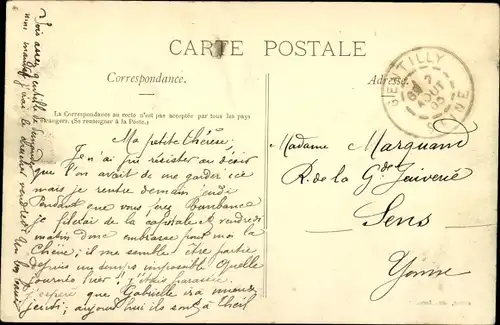 CARTE POSTALE
Correspondance.
Adresse.
La Correspondance au recto n'est pas acceptée par tous les pays
étrangers. (Se renseigner à la Poste.)
GENTILLY
AOUT
SEINE
Ma petite Thérèse,
Je n'ai pu résister au désir
que l'on avait de me garder ici
mais je rentre demain jeudi
Pendant que vous ferez
je filerai de la capitale et vendredi
matin donc embrasse pour moi la
Chère; il me semble être partie
depuis un temps impossible Quelle
journée hier! j'étais harassée
j'espère que Gabrielle va mieux
jeudi; aujourd'hui ils sont à Theil
Madame Marquand
R. de la Gde Juiverie
Sens
Yonne
Sois assez gentille de
me chercher vendredi